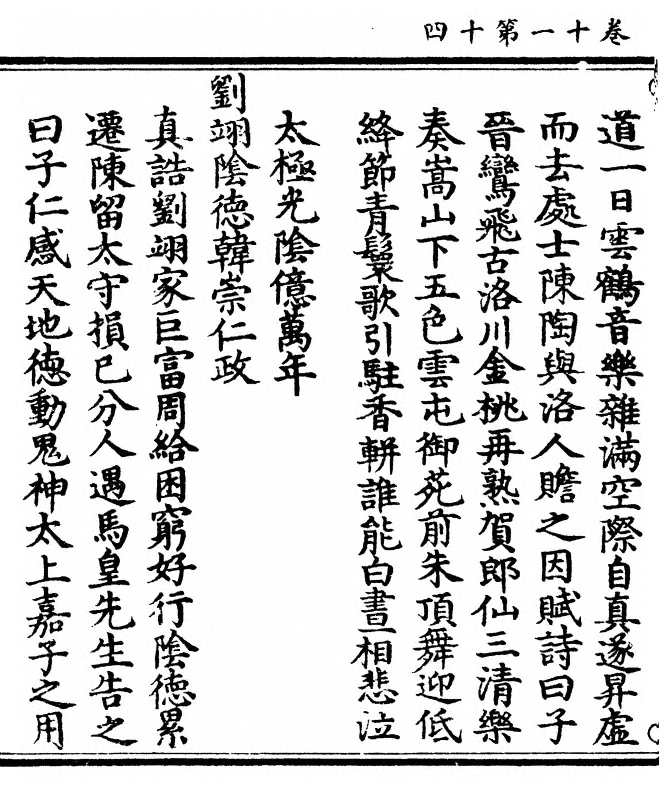 卷十一第十四
道一日雲鶴音樂雜滿空際自真遂昇虛
而去處士陳陶與洛人瞻之因賦詩曰子
晉鸞飛古洛川金桃再熟賀郎仙三清樂
奏嵩山下五色雲屯御苑前朱頂舞迎低
絳節青鬟歌引駐香軿誰能白晝相悲泣
太極光陰億萬年
劉翊陰德韓崇仁政
真誥劉翊家巨富周給困窮好行陰德累
遷陳留太守損己分人遇馬皇先生告之
曰子仁感天地德動鬼神太上嘉子之用